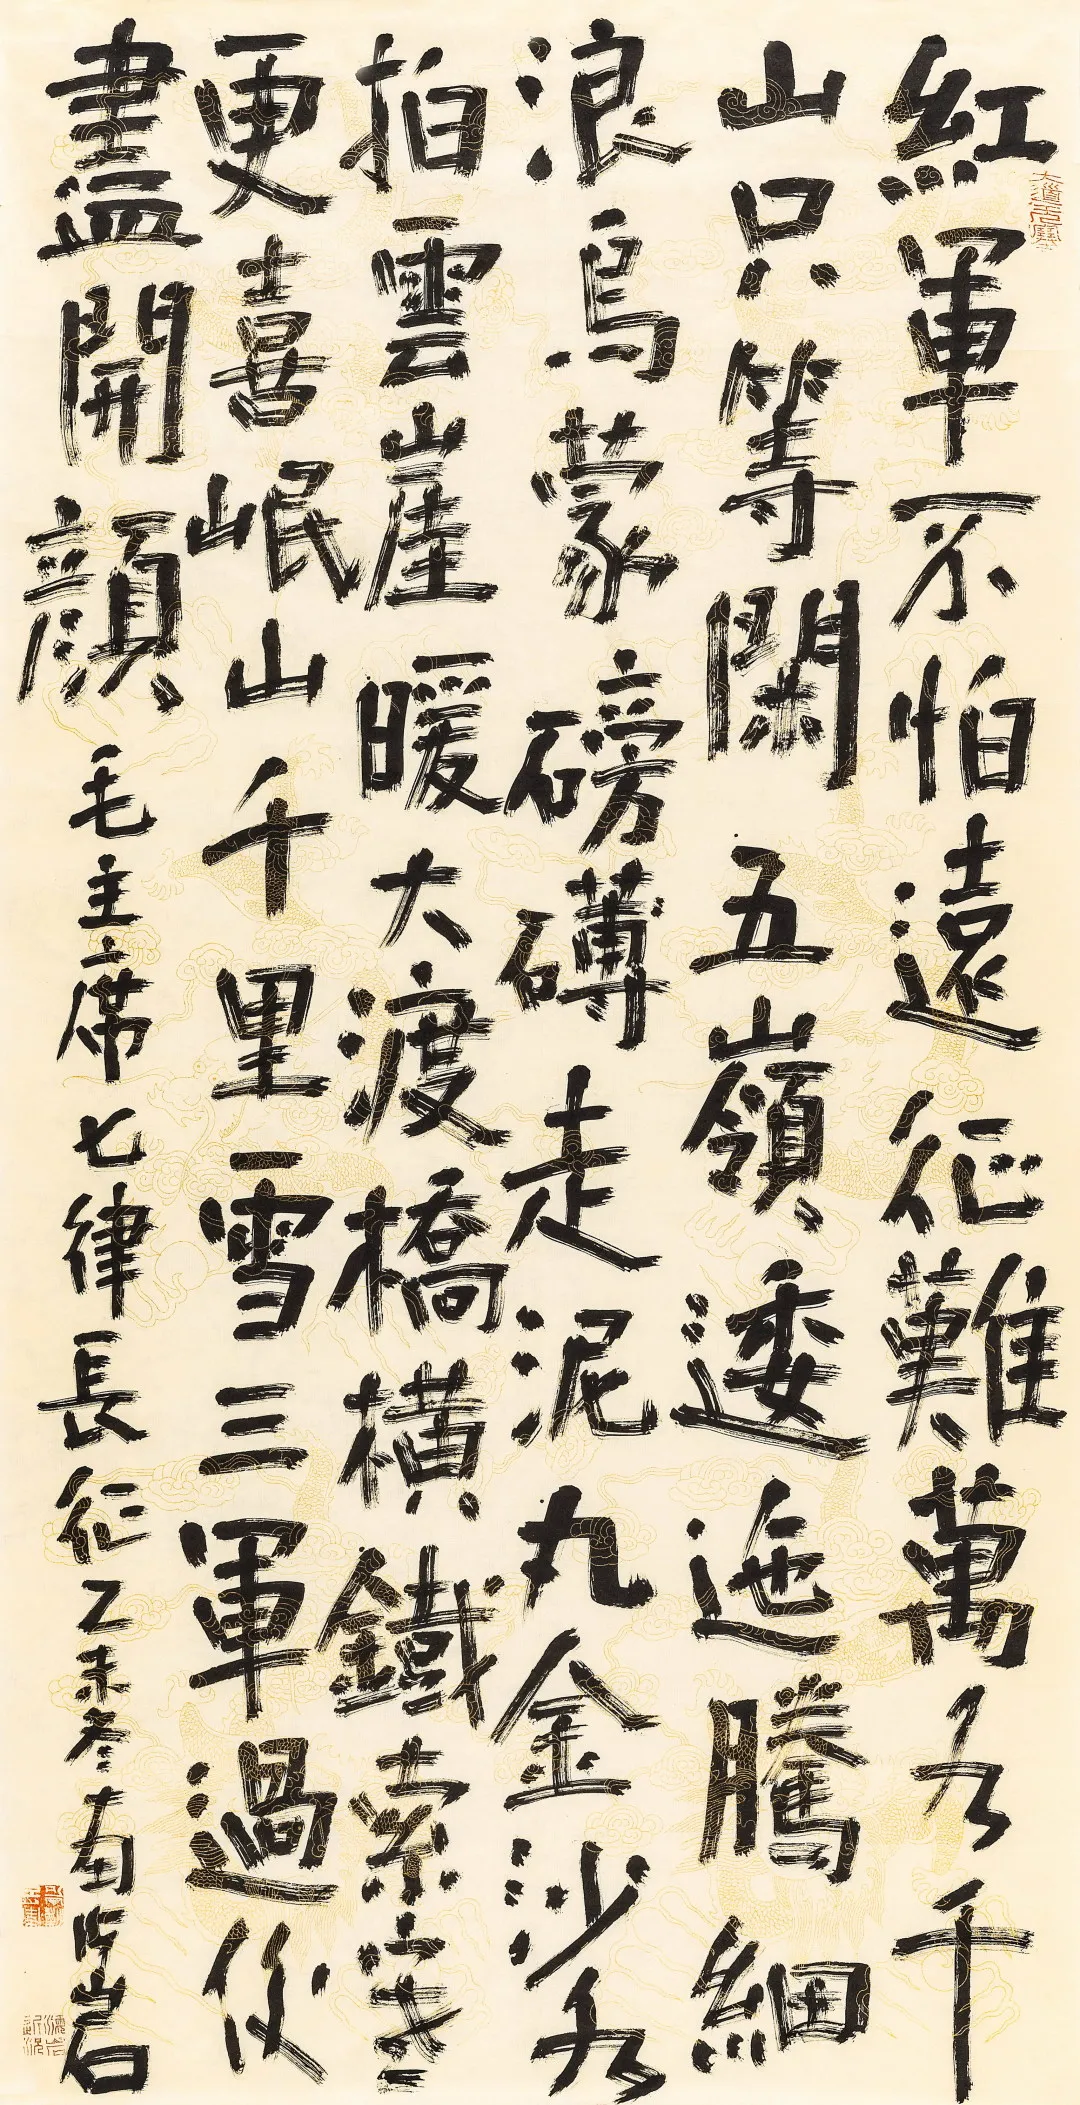 紅軍不怕遠征難萬水千
山只等閑五嶺逶迤騰細
浪烏蒙磅礴走泥丸金沙水
拍雲崖暖大渡橋橫鐵索寒
更喜岷山千里雪三軍過後
盡開顏
毛主席七律長征乙未冬南岸岩